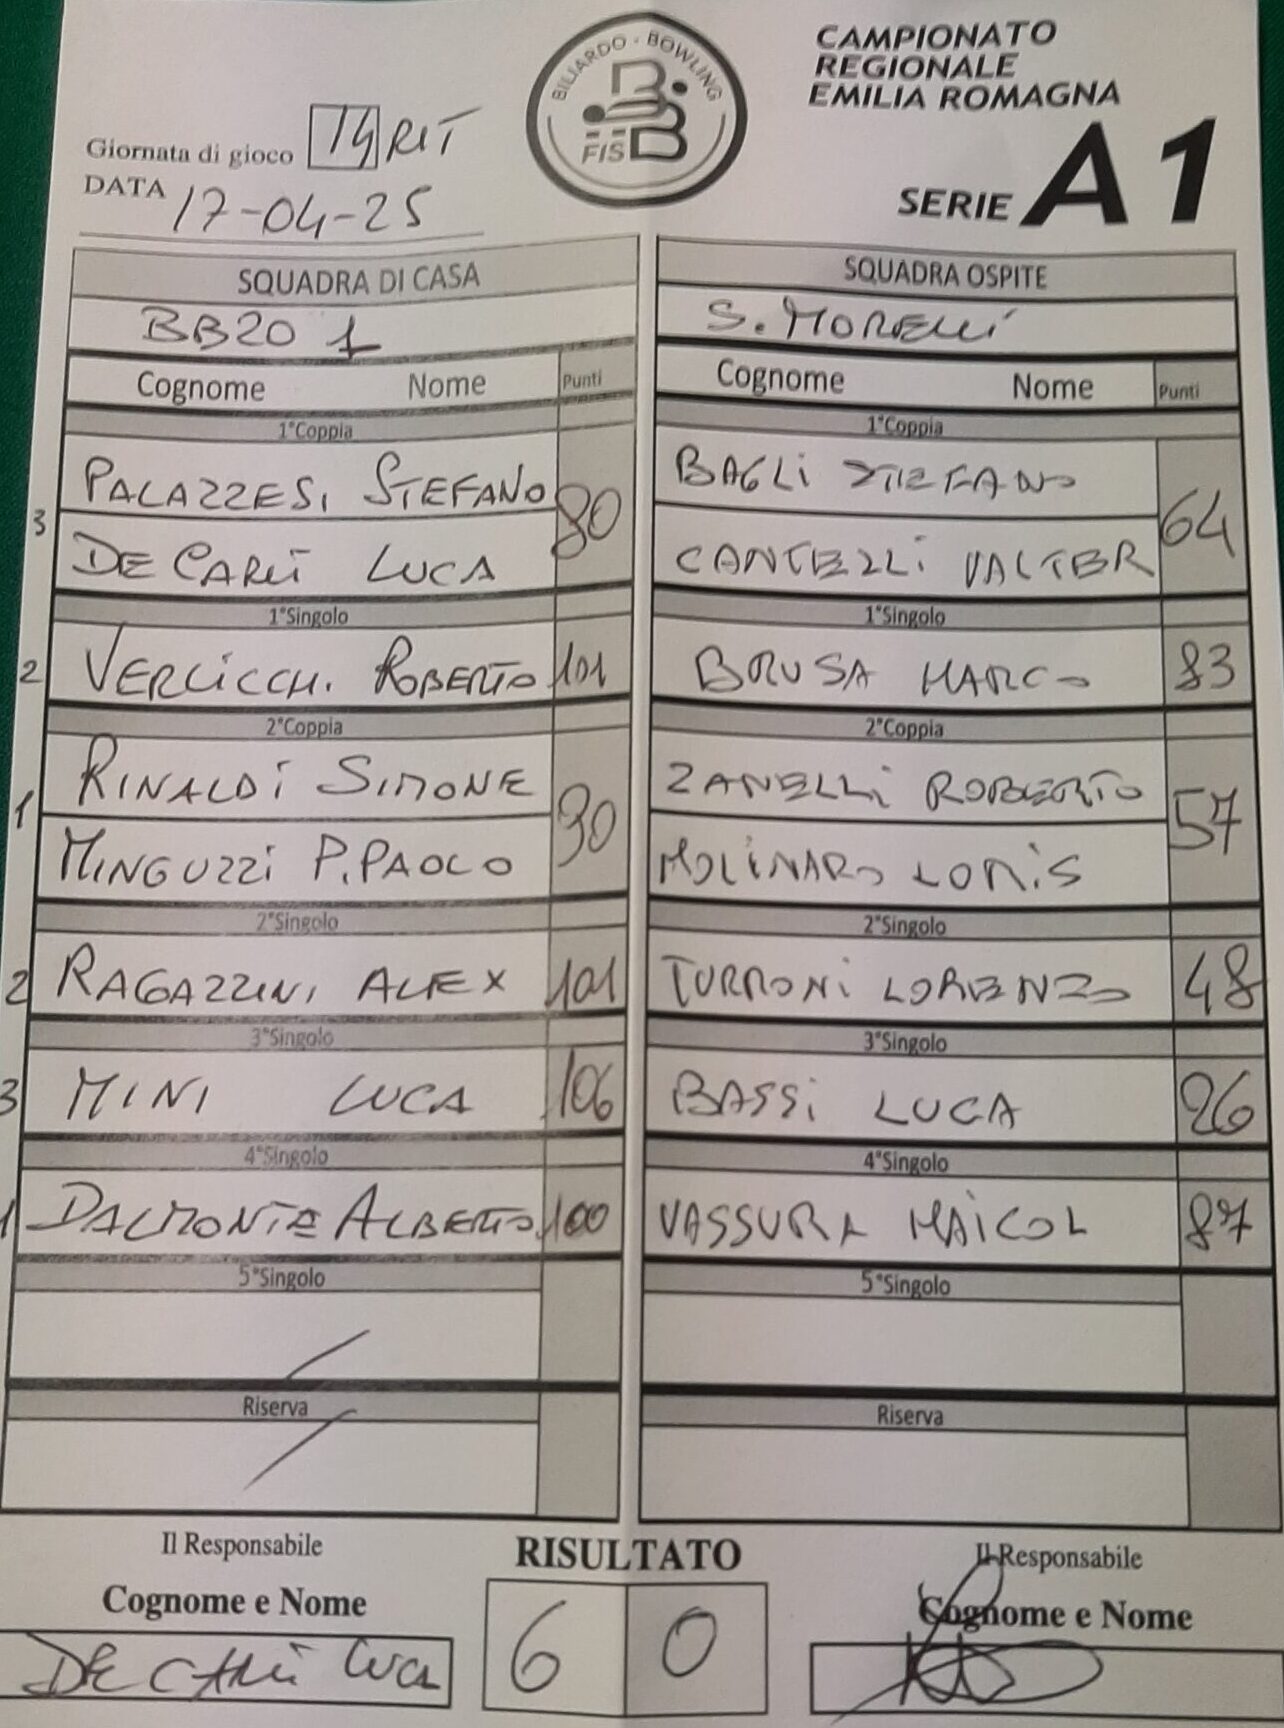 BILIARDO - BOWLING
FISBB
CAMPIONATO
REGIONALE
EMILIA ROMAGNA
SERIE A1
Giornata di gioco 14 RIT
DATA 17-04-25
SQUADRA DI CASA
BB20 1
Cognome Nome Punti
1°Coppia
3
PALAZZESI STEFANO
DE CARLI LUCA
80
1°Singolo
2 VERLICCHI ROBERTO 101
2°Coppia
1
RINALDI SIMONE
MINGUZZI P.PAOLO
90
2°Singolo
2 RAGAZZINI ALEX 101
3°Singolo
3 MINI LUCA 106
4°Singolo
1 DALMONTE ALBERTO 100
5°Singolo
Riserva
SQUADRA OSPITE
S. MORELLI
Cognome Nome Punti
1°Coppia
BAGLI STEFANO
CANTELLI VALTER
64
1°Singolo
BRUSA MARCO 83
2°Coppia
ZANELLI ROBERTO
MOLINARO LORIS
57
2°Singolo
TURRONI LORENZO 48
3°Singolo
BASSI LUCA 96
4°Singolo
VASSURA MAICOL 87
5°Singolo
Riserva
Il Responsabile
Cognome e Nome
DE CARLI LUCA
RISULTATO
6 0
Il Responsabile
Cognome e Nome